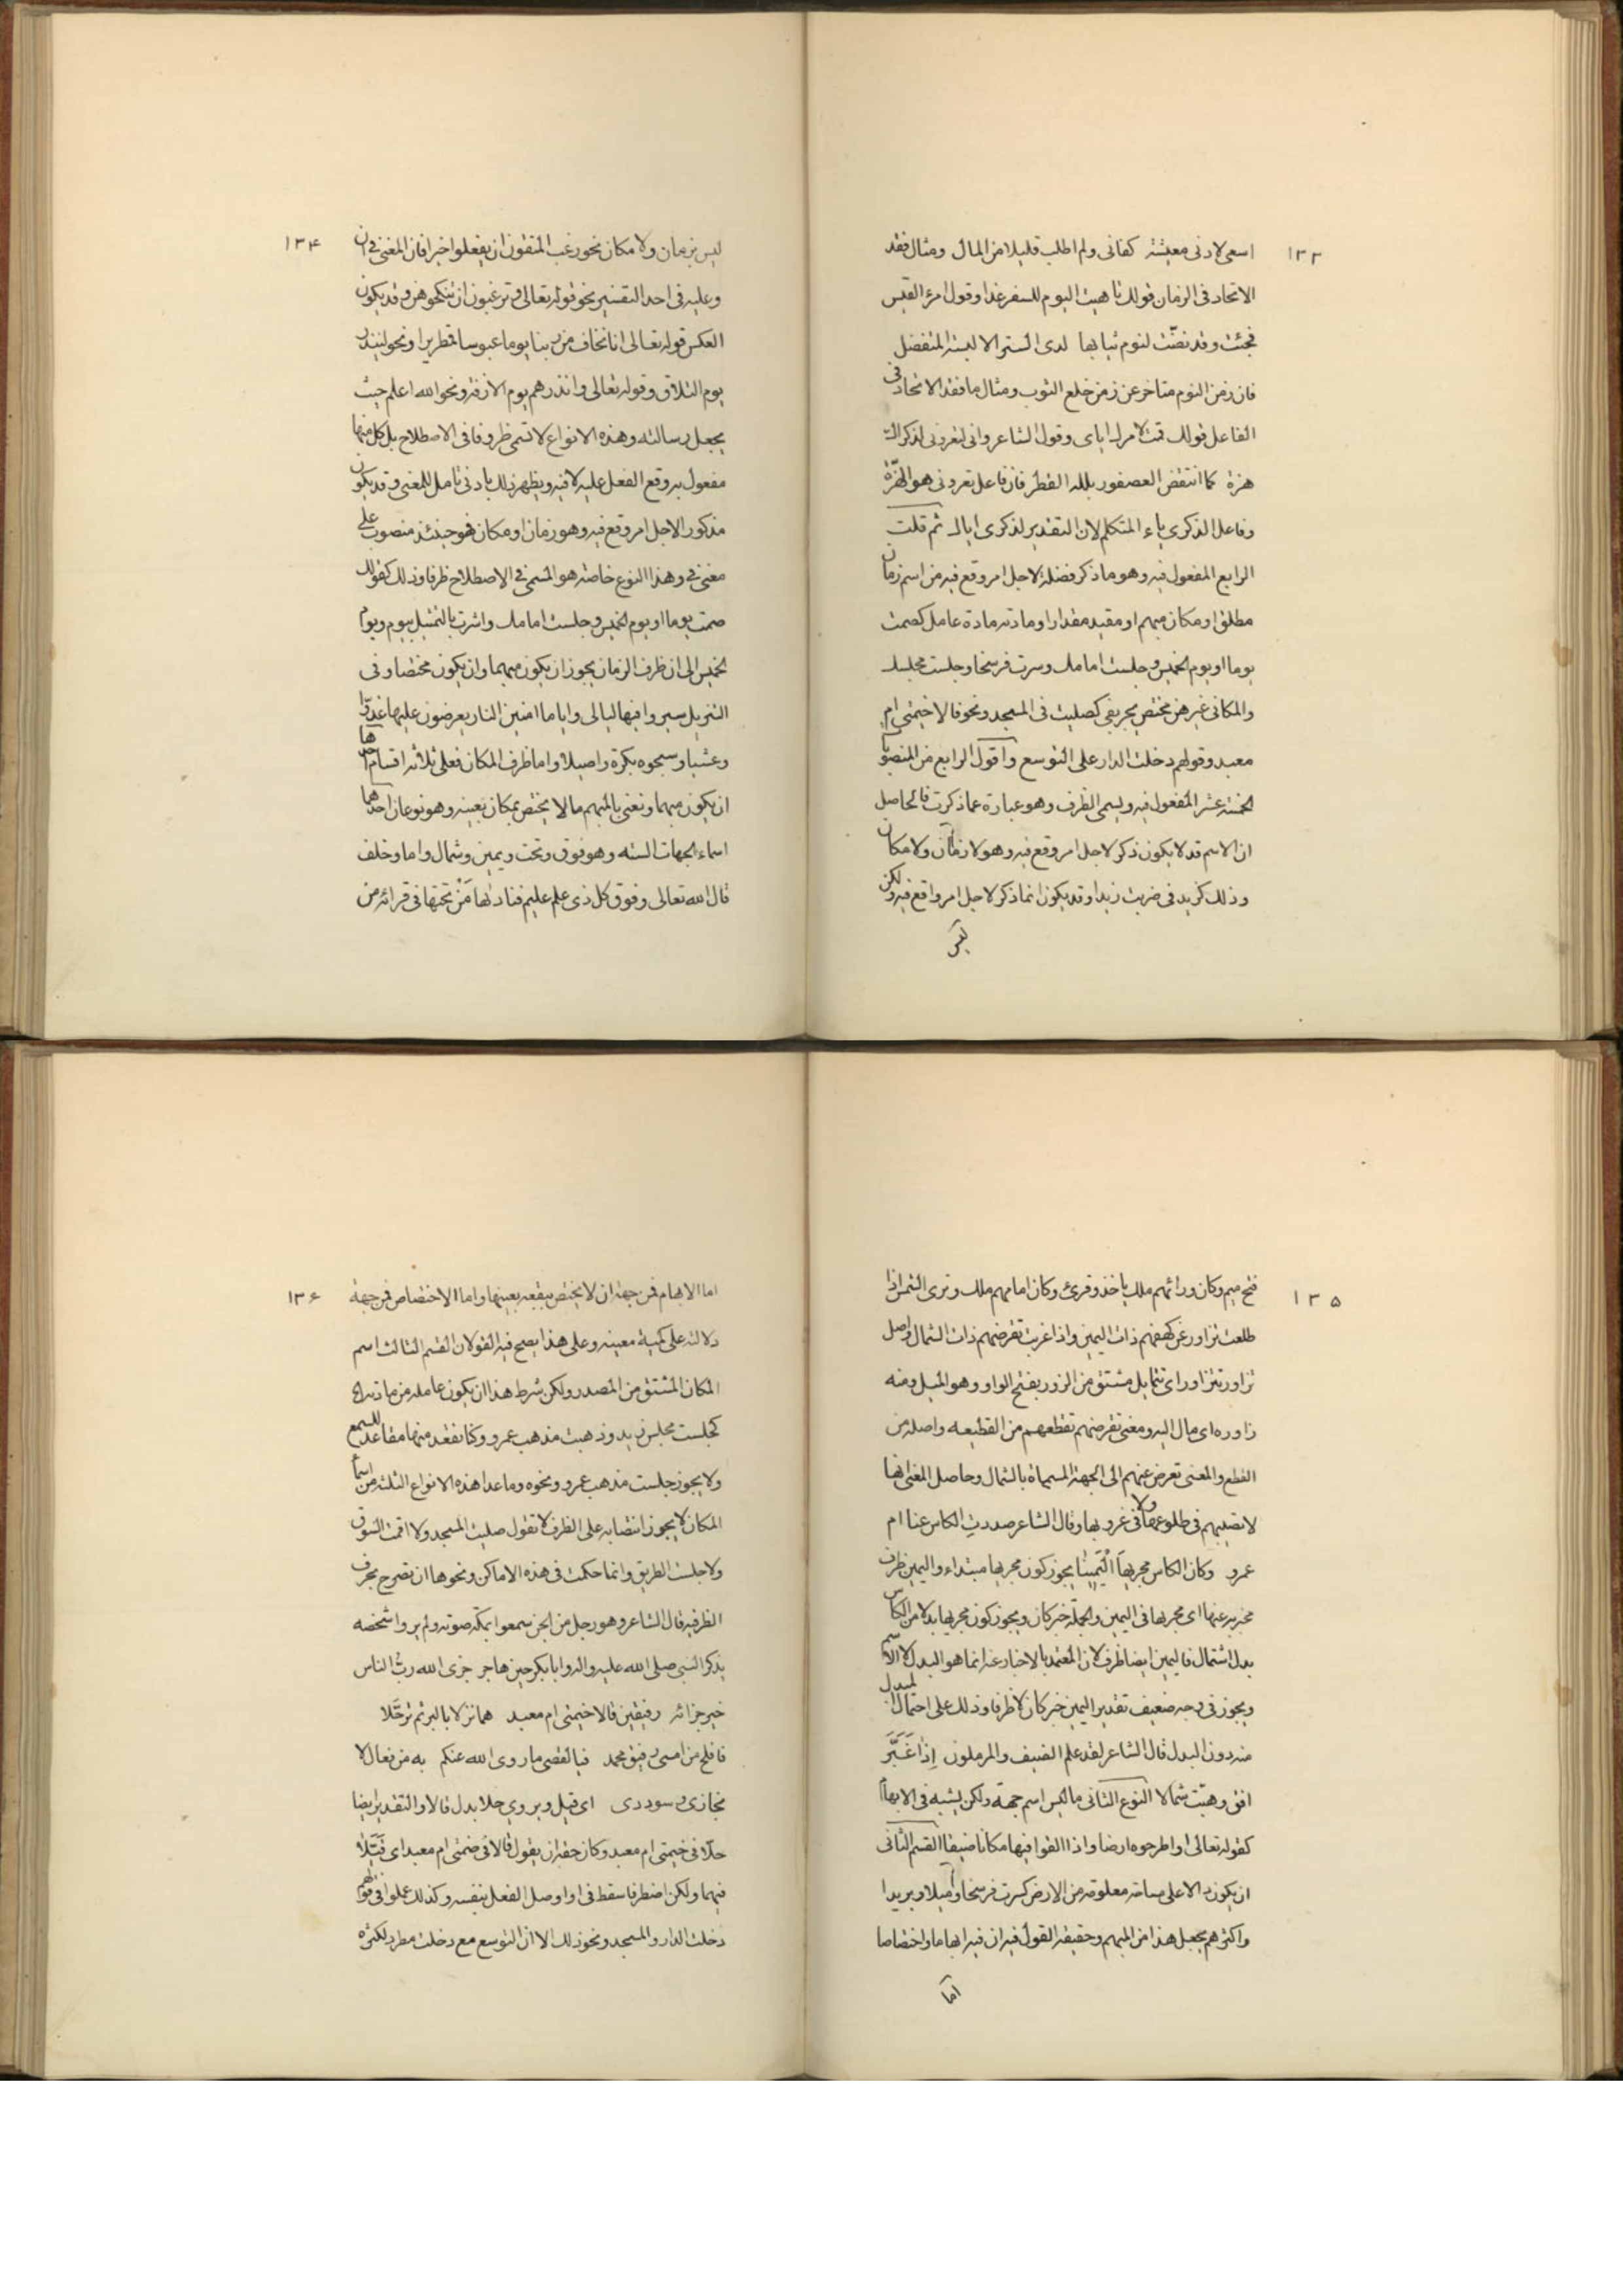 ١٣٣
اسعى لادنى معيشة كفانى ولم اطلب قليلا من المال ومثال فقد
الاتحاد فى الزمان قولك تاهبت اليوم للسفر غدا وقول امرء القيس
فجئت وقد نضّت لنوم ثيابها لدى الستر الا لبسة المتفضل
فان زمن النوم متاخر عن زمن خلع الثوب ومثال ما فقد الاتحاد فى
الفاعل قولك قمت لامرك اياى وقول الشاعر وانى لتعرونى لذكراك
هزة كما انتفض العصفور بلله القطر فان فاعل تعرونى هو الهزّة
وفاعل الذكرى ياء المتكلم لان التقدير لذكرى اياك ثم قلت
الرابع المفعول فيه وهو ما ذكر فضلة لاجل امر وقع فيه من اسم زمان
مطلقا او مكان مبهم او مفيد مقدارا او مادته مادة عامله كصمت
يوما او يوم الخميس وجلست امامك وسرت فرسخا وجلست مجلسك
والمكانى غيرهن مختص يجر بفى كصليت فى المسجد ونحو قالا خيمتى ام
معبد وقولهم دخلت الدار على التوسع واقول الرابع من المنصوبات
الخمسة عشر المفعول فيه ويسمى الظرف وهو عبارة عما ذكرت فالحاصل
ان الاسم قد لا يكون ذكر لاجل امر وقع فيه وهو لا زمان ولا مكان
وذلك كزيد فى ضربت زيدا وقد يكون انما ذكر لاجل امر واقع فيه ولكن
ليس
١٣۴
ليس بزمان ولا مكان نحو رغب المتقون ان يفعلوا خيرا فان المعنى فى ان
وعليه فى احد التفسير نحو قوله تعالى وترغبون ان تنكحوهن وقد يكون
العكس قوله تعالى انا نخاف من ربنا يوما عبوسا قمطريرا ونحو لينذر
يوم التلاق وقوله تعالى وانذرهم يوم الازفة ونحو الله اعلم حيث
يجعل رسالته وهذه الانواع لا تسمى ظروفا فى الاصطلاح بل كل منها
مفعول به وقع الفعل عليه لا فيه ويظهر ذلك بادنى تامل للمعنى وقد يكون
مذكورا لاجل امر وقع فيه وهو زمان او مكان فهو حينئذ منصوب على
معنى فى وهذا النوع خاصة هو المسمى فى الاصطلاح ظرفا وذلك كقولك
صمت يوما او يوم الخميس وجلست امامك واشرت بالتمثيل بيوم ويوم
الخميس الى ان ظرف الزمان يجوز ان يكون مبهما وان يكون مختصا وفى
التنزيل سيروا فيها ليالى واياما امنين النار يعرضون عليها غدوّا
وعشيا وسبحوه بكرة واصيلا واما ظرف المكان فعلى ثلاثة اقسام احدها
ان يكون مبهما ونعنى بالمبهم ما لا يختص بمكان بعينه وهو نوعان احدهما
اسماء الجهات الستة وهو فوق وتحت ويمين وشمال واما وخلف
قال الله تعالى وفوق كل ذى علم عليم فنادٰىها مَنْ تحتها فى قرائة من
١٣۵
فتح ميم وكان ورائهم ملك ياخذ وقرئ وكان امامهم ملك وترى الشمس اذا
طلعت تزاور عن كهفهم ذات اليمين واذا غربت تقرضهم ذات الشمال واصل
تزاور تتزاور اى تتمايل مشتق من الزور بفتح الواو وهو الميل ومنه
زاوره اى مال اليه ومعنى تقرضهم تقطعهم من القطيعة واصله من
القطع والمعنى تعرض عنهم الى الجهة المسماة بالشمال وحاصل المعنى انها
لا تصيبهم فى طلوعها ولا فى غروبها وقال الشاعر صددتِ الكاس عنا ام
عمرو وكان الكاس مجريها اليَمينا يجوز كون مجريها مبتداء واليمين ظرف
مخبر به عنها اى مجريها فى اليمين والجملة خبر كان ويجوز كون مجريها بدلا من الكاس
بدل اشتمال فاليمين ايضا ظرف لان المعتمد بالاخبار عنه انما هو البدل لا الاسم
ويجوز فى وجه ضعيف تقدير اليمين خبر كان لا ظرفا وذلك على احتمال المبدل
منه دون البدل قال الشاعر لقد علم الضيف والمرملون اِذا غَبَّرَ
افق وهبّت شمالا النوع الثانى ما ليس اسم جهة ولكن يشبه فى الابهام
كقوله تعالى او اطرحوه ارضا واذا القوا فيها مكانا ضيقا القسم الثانى
ان يكون دالا على مساحة معلومة من الارض كسرت فرسخا او ميلا وبريدا
واكثرهم يجعل هذا من المبهم وحقيقة القول فيه ان فيه ابهاما واختصاصا
اما
١٣۶
اما الابهام فمن جهة ان لا يختص ببقعة بعينها واما الاختصاص فمن جهة
دلالته على كمية معينة وعلى هذا يصح فيه القولان القسم الثالث اسم
المكان المشتق من المصدر ولكن شرط هذا ان يكون عامله من مادته
كجلست مجلس زيد وذهبت مذهب عمرو وكنا نقعد منها مقاعد للسمع
ولا يجوز جلست مذهب عمرو ونحوه وما عدا هذه الانواع الثلثة من اسماء
المكان لا يجوز انتصابه على الظرف لا تقول صليت المسجد ولا اقمت السوق
ولا جلست الطريق وانما حكمت فى هذه الاماكن ونحوها ان تصرح بحرف
الظرفية قال الشاعر وهو رجل من الجن سمعوا بمكّة صوته ولم يروا شخصه
يذكر النبى صلى الله عليه واله وابا بكر حين هاجر جزى الله ربُّ الناس
خير جزائه رفيقين قالا خيمتى ام معبد هما نزلا بالبر ثم ترحَّلا
فافلح من امسى رفيق محمد فيا لقصى ما روى الله عنكم به من فعال لا
تجازى وسوددى اى قيل ويروى حلا بدل قالا والتقدير ايضا
حلّا فى خيمتى ام معبد وكان حقه ان يقول قالا فى خيمتى ام معبد اى قَيَّلا
فيهما ولكن اضطر فاسقط فى واوصل الفعل بنفسه وكذلك عملوا فى قولهم
دخلت الدار والمسجد ونحو ذلك الا ان التوسع مع دخلت مطرد لكثرة